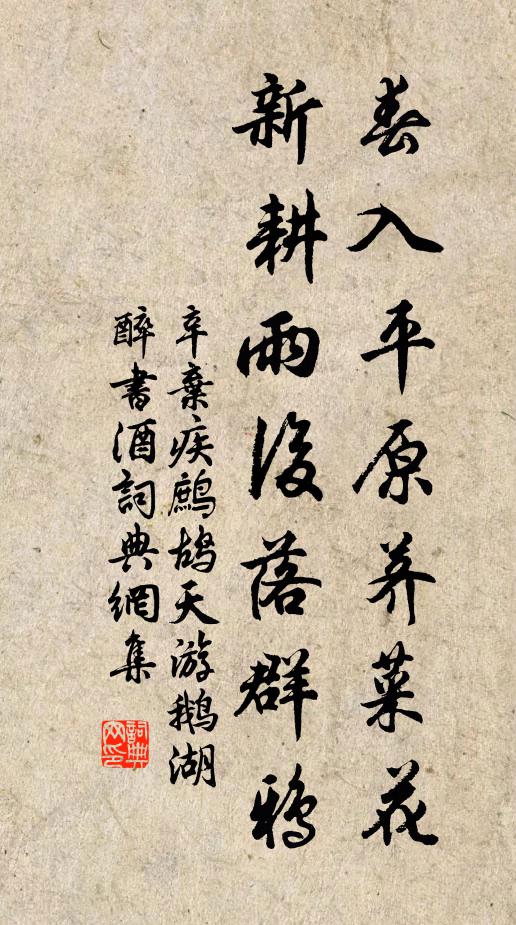 春入平原荠菜花
新耕雨後落群鴉
辛棄疾鷓鴣天游鵝湖
醉書酒詞典網集
詞典网印